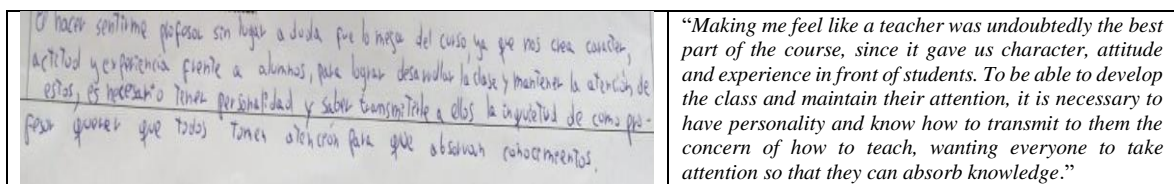 O hacer sentirme profesor sin lugar a duda fue lo mejor del curso, ya que nos crea carácter,
actitud y experiencia frente a alumnos, para lograr desarrollar la clase y mantener la atención de
estos, es necesario tener personalidad y saber transmitirle a ellos la inquietud de como pro-
fesor querer que todos tomen atención para que absorvan conocimientos.
“Making me feel like a teacher was undoubtedly the best
part of the course, since it gave us character, attitude
and experience in front of students. To be able to develop
the class and maintain their attention, it is necessary to
have personality and know how to transmit to them the
concern of how to teach, wanting everyone to take
attention so that they can absorb knowledge.”